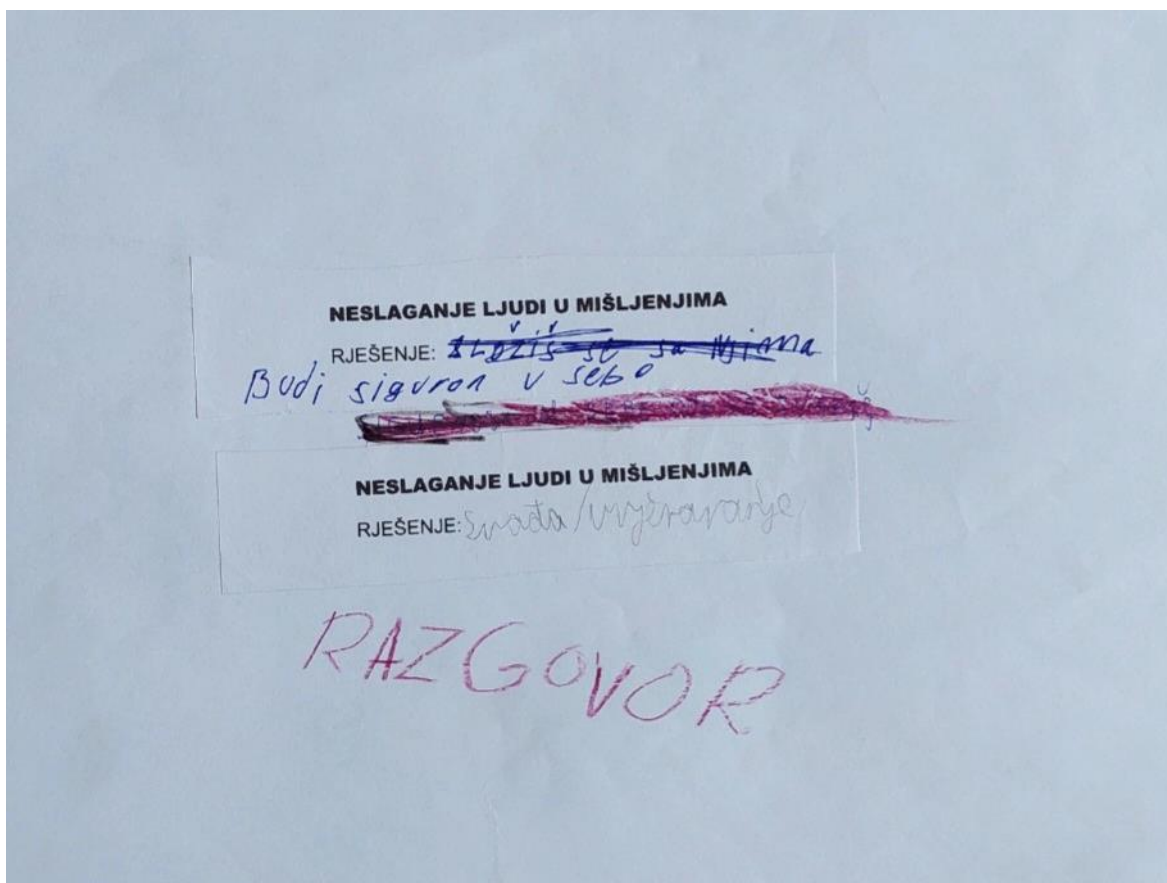 NESLAGANJE LJUDI U MIŠLJENJIMA
RJEŠENJE: Složiš se sa Njima
Budi siguron u sebo
NESLAGANJE LJUDI U MIŠLJENJIMA
RJEŠENJE: Svađa/uvjeravanje
RAZGOVOR